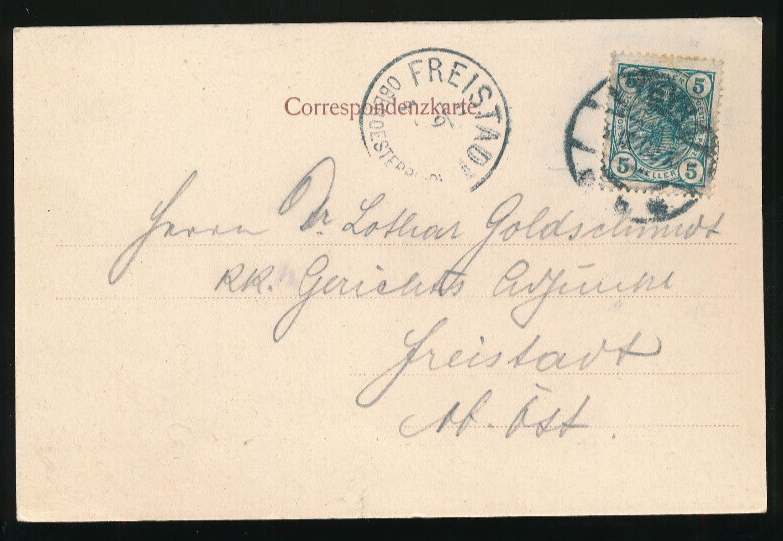 Correspondenzkarte.
FREISTADT
OBER-OESTERREICH
9
5 5
5 5
HELLER
Herrn Dr Lothar Goldschmidt
kk. Gerichts Adjunkt
Freistadt
Ob. Öst.